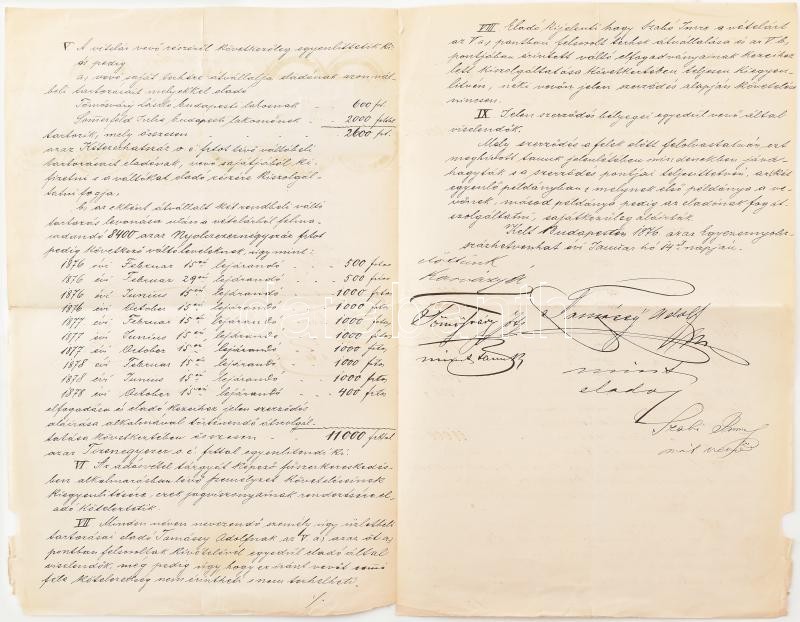 V A vételár vevő részéről következőleg egyenlittetik ki
és pedig
a, vevő saját terhére átvállalja eladónak azon vál-
tóbeli tartozásait melyekkel eladó
Tömösváry László budapesti lakosnak - 600 frt.
Sommerfeld Julia budapesti lakosnének - 2000 frttal
tartozik, mely összesen - 2600 frt.
azaz Kétezerhatszáz o é frtot tevő váltóbeli
tartozásait eladónak, vevő sajátjából ki-
fizetni s a váltókat eladó részére kiszolgál-
tatni fogja;
b, az ekként átvállalt két rendbeli váltó
tartozás levonása után a vételárból fenma-
radandó 8400 azaz Nyolczezernégyszáz frtot
pedig következő váltóleveleknek, úgy mint:
1876 évi Februar 15én lejárandó - - - 500 frtos
1876 évi Februar 29én lejárandó - - - 500 frtos
1876 évi Junius 15én lejárandó - - - 1000 frtos
1876 évi October 15én lejárandó - - - 1000 frtos
1877 évi Februar 15én lejárandó - - - 1000 frtos
1877 évi Junius 15én lejárandó - - - 1000 frtos
1877 évi October 15én lejárandó - - - 1000 frtos
1878 évi Februar 15én lejárandó - - - 1000 frtos
1878 évi Junius 15én lejárandó - - - 1000 frtos
1878 évi October 15én lejárandó - - - 400 frtos
elfogadása és eladó kezeihez jelen szerződés
aláirása alkalmával történendő átszolgál-
tatása következtében összesen - 11000 frttal
azaz Tizenegyezer o é. frttal egyenlitendi ki.
VI Az adásvétel tárgyát képező fűszerkereskedés-
ben alkalmazásban levő személyzet követeléseinek
kiegyenlitésére, ezek jogviszonyainak rendezésére el-
adó köteleztetik.
VII Minden néven nevezendő személy úgy üzletbeli
tartozásai eladó Tamássy Adolfnak az V a, azaz öt a,
pontban felsoroltak kivételével egyedül eladó által
viselendők, még pedig úgy hogy ez iránt vevőt semmi
féle kötelezettség nem érintheti s nem terhelheti.
./.
VIII Eladó kijelenti hogy Szabó Imre a vételárt
az V a, pontban felsorolt terhek átvállalása és az V b,
pontjában érintett váltó elfogadványainak kezeihez
lett kiszolgáltatása következtében teljesen kiegyen-
litvén, neki vevőn jelen szerződés alapján követelése
nincsen.
IX Jelen szerződés bélyegei egyedül vevő által
viselendők.
Mely szerződés a felek előtt felolvastatván, azt
meghivott tanuk jelenlétében mindenekben jóvá-
hagyták s a szerződés pontjai teljesittetvén, azt két
egyenlő példányban; melynek első példánya a ve-
vőnek, másod példánya pedig az eladónak fog át-
szolgáltatni, sajátkezüleg aláirták.
Kelt Budapesten 1876 azaz Egyezernyolcz-
százhetvenhat évi Januar hó 14én napján.
előttünk
Tamássy Adolf
mint tanuk,
mint
eladó
Szabó Imre
mint vevő
darabanth